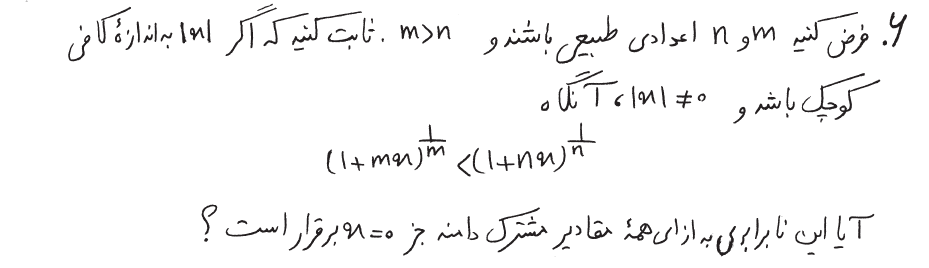 ۶. فرض کنید m و n اعدادی طبیعی باشند و m>n . ثابت کنید که اگر |x| به اندازهٔ کافی
کوچک باشد و |x| ≠ ۰، آنگاه
(1+mx)^{1/m} < (1+nx)^{1/n}
آیا این نابرابری به ازای همهٔ مقادیر مشترک دامنه جز x=۰ برقرار است ؟